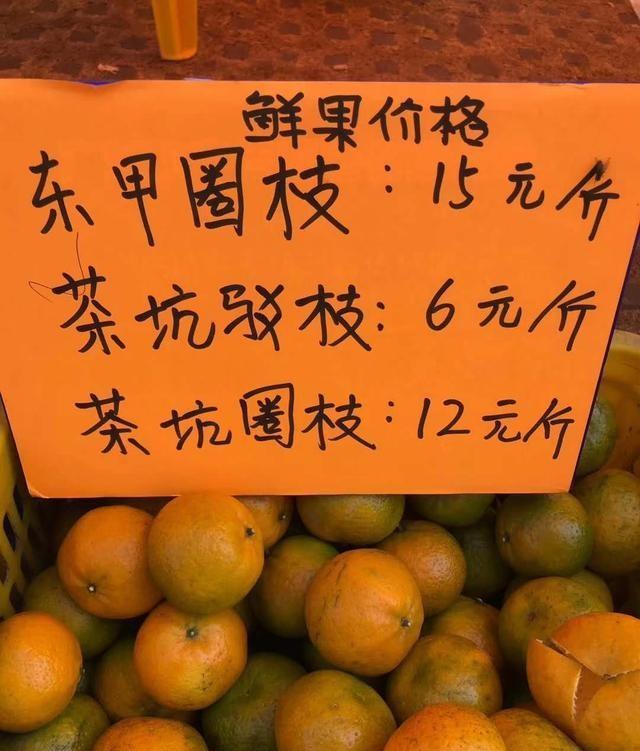 鲜果价格
东甲圈枝：15元斤
茶坑驳枝：6元斤
茶坑圈枝：12元斤